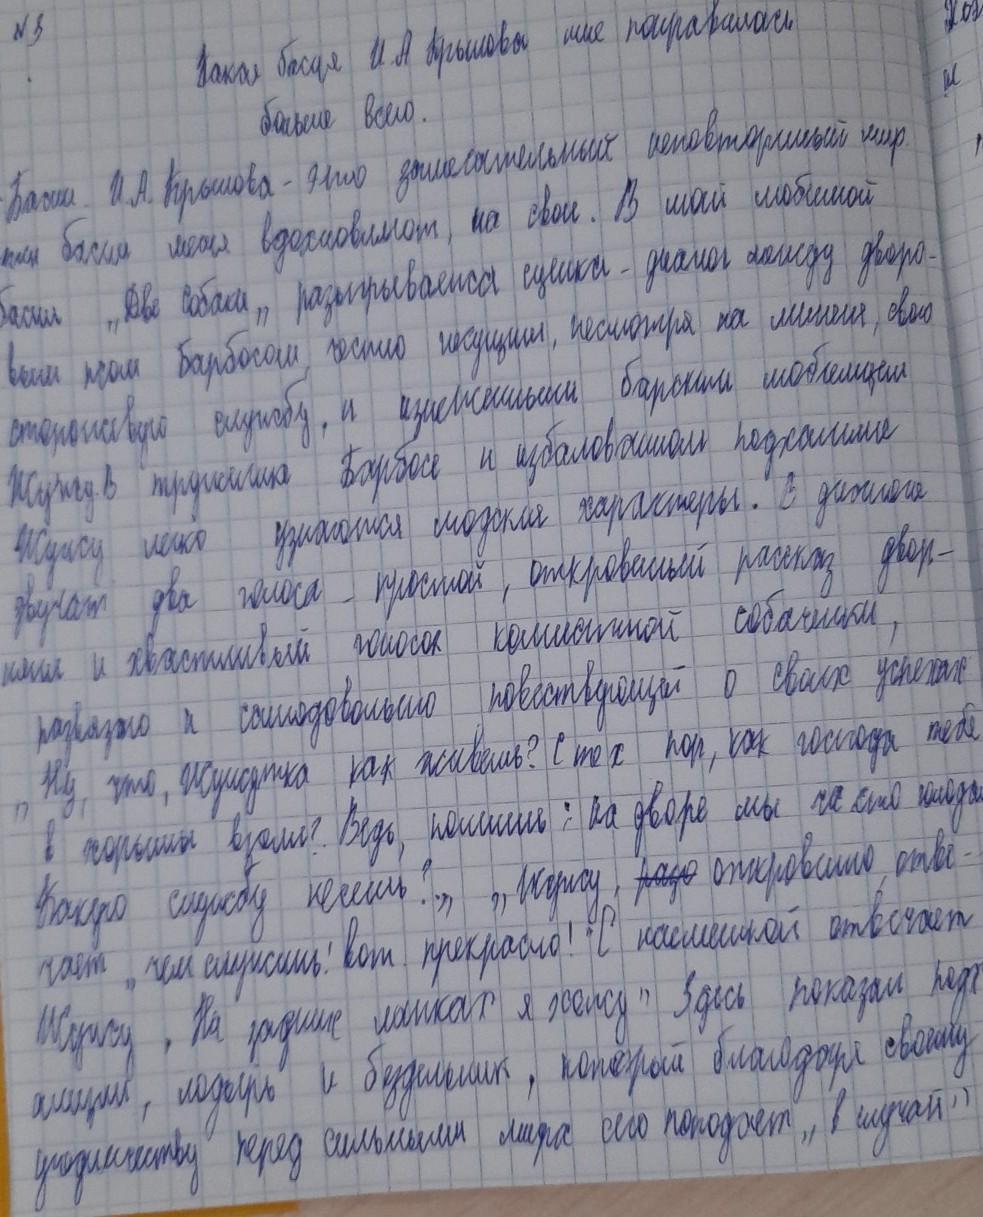 №3
Какая басня И.А Крылова мне понравилась
больше всего.
Басни И.А. Крылова - это замечательный неповторимый мир.
басни меня вдохновляют, на свои. В моей любимой
басни „Две собаки„ разыгрывается сценка - диалог между дворо-
вым псом Барбосом, честно несущим, несмотря на лишения, свою
сторожевую службу, и изнеженным барским любимцем
Жужу. В труженике Барбосе и избалованном подхалиме
Жужу легко узнаются людские характеры. В диалоге
звучат два голоса - простой, откровенный рассказ двор-
няги и хвастливый голосок комнатной собачонки,
развязно и самодовольно повествующей о своих успехах
„Ну, что, Жужутка как живешь? С тех пор, как господа тебя
в хоромы взяли? Ведь, помнишь: на дворе мы часто голодали
Какую службу несешь?„ „Жужу, откровенно, отве-
чает „чем служишь! вот прекрасно!" С насмешкой отвечает
Жужу, На задних лапках я хожу" Здесь показан подх
алим, лодырь и бездельник, который благодаря своему
угодничеству перед сильными мира сего попадает „в случай"